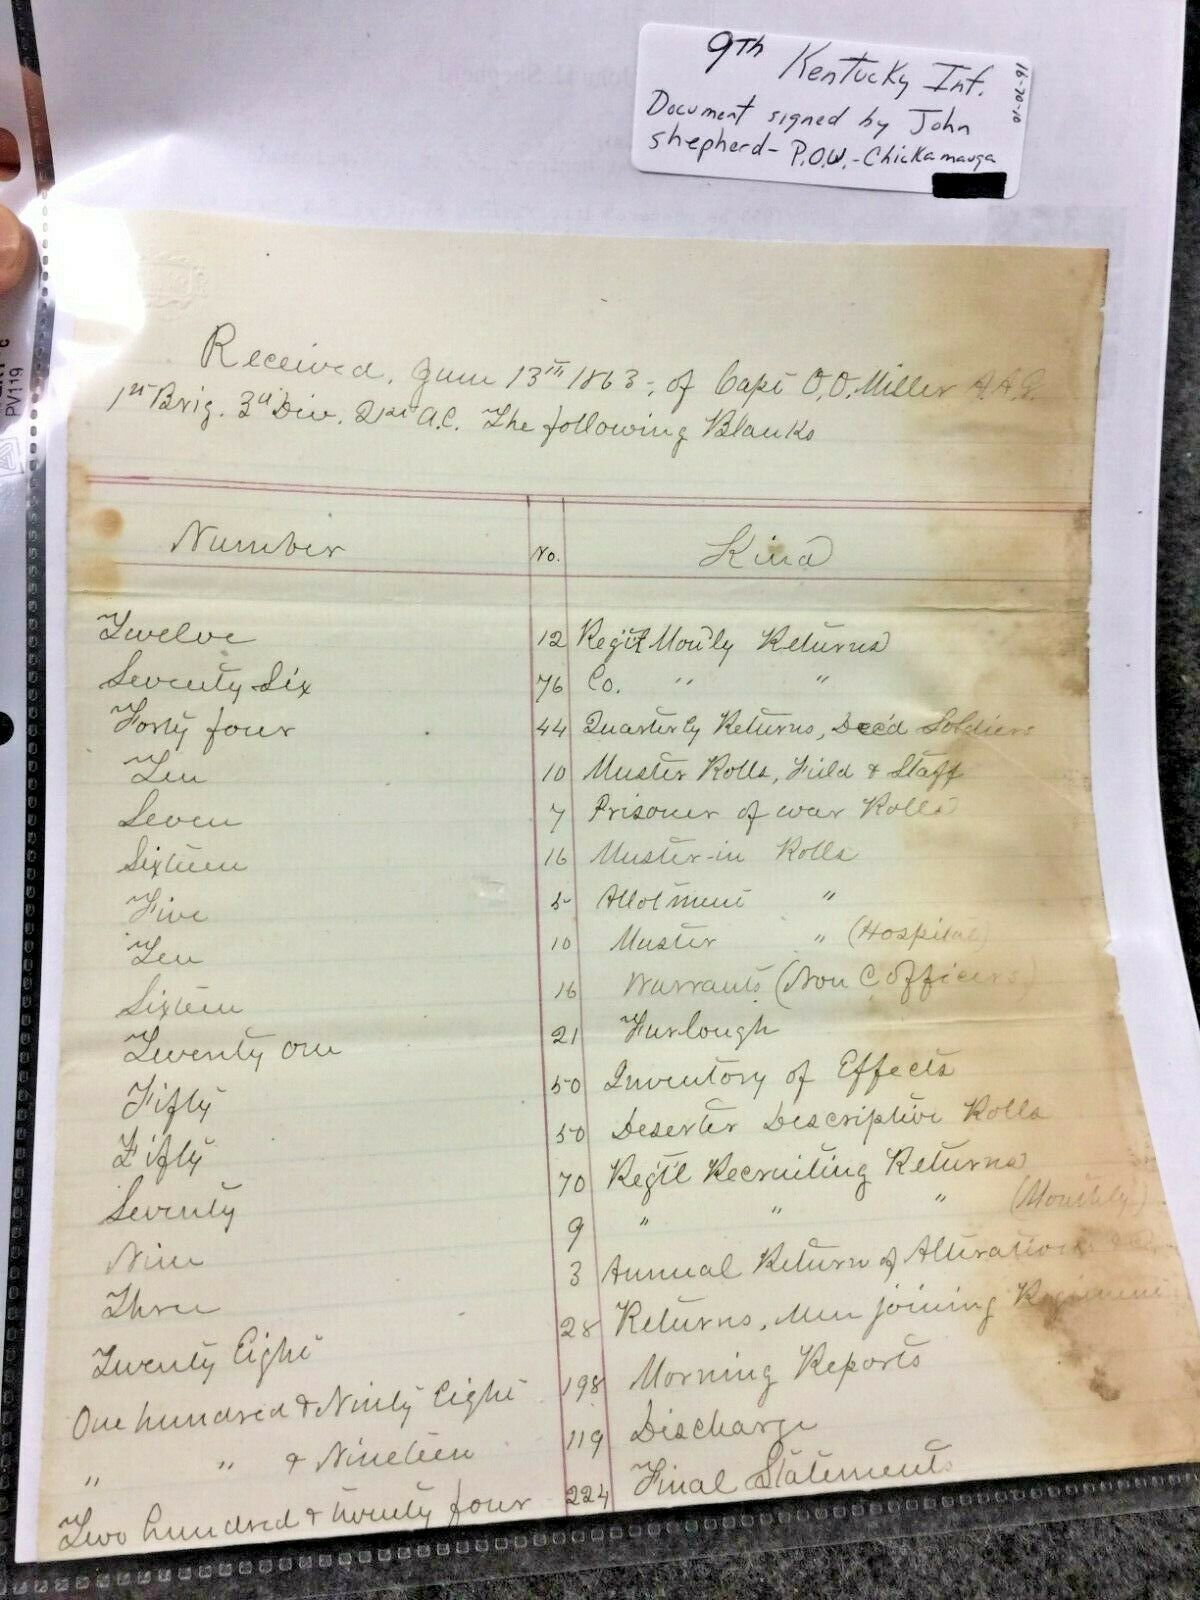 9TH Kentucky Inf.
Document signed by John
Shepherd - P.O.W. - Chickamauga
16-70-10
PV119
Received, June 13th 1863, of Capt O.O. Miller A.A.G.
1st Brig. 3d Div. 21st A.C. The following Blanks
Number No. Kind
Twelve 12 Reg'tl Mon'ly Returns
Seventy Six 76 Co. " "
Forty four 44 Quarterly Returns, Dec'd Soldiers
Ten 10 Muster Rolls, Field & Staff
Seven 7 Prisoner of war Rolls
Sixteen 16 Muster-in Rolls
Five 5 Allotment "
Ten 10 Muster " (Hospital)
Sixteen 16 Warrants (Non C Officers)
Twenty one 21 Furlough
Fifty 50 Inventory of Effects
Fifty 50 Deserter Descriptive Rolls
Seventy 70 Regt'l Recruiting Returns
Nine 9 " " " (Monthly)
Three 3 Annual Return of Alterations
Twenty Eight 28 Returns, Men joining Regiment
One hundred & Ninty Eight 198 Morning Reports
" " & Nineteen 119 Discharge
Two hundred & twenty four 224 Final Statements